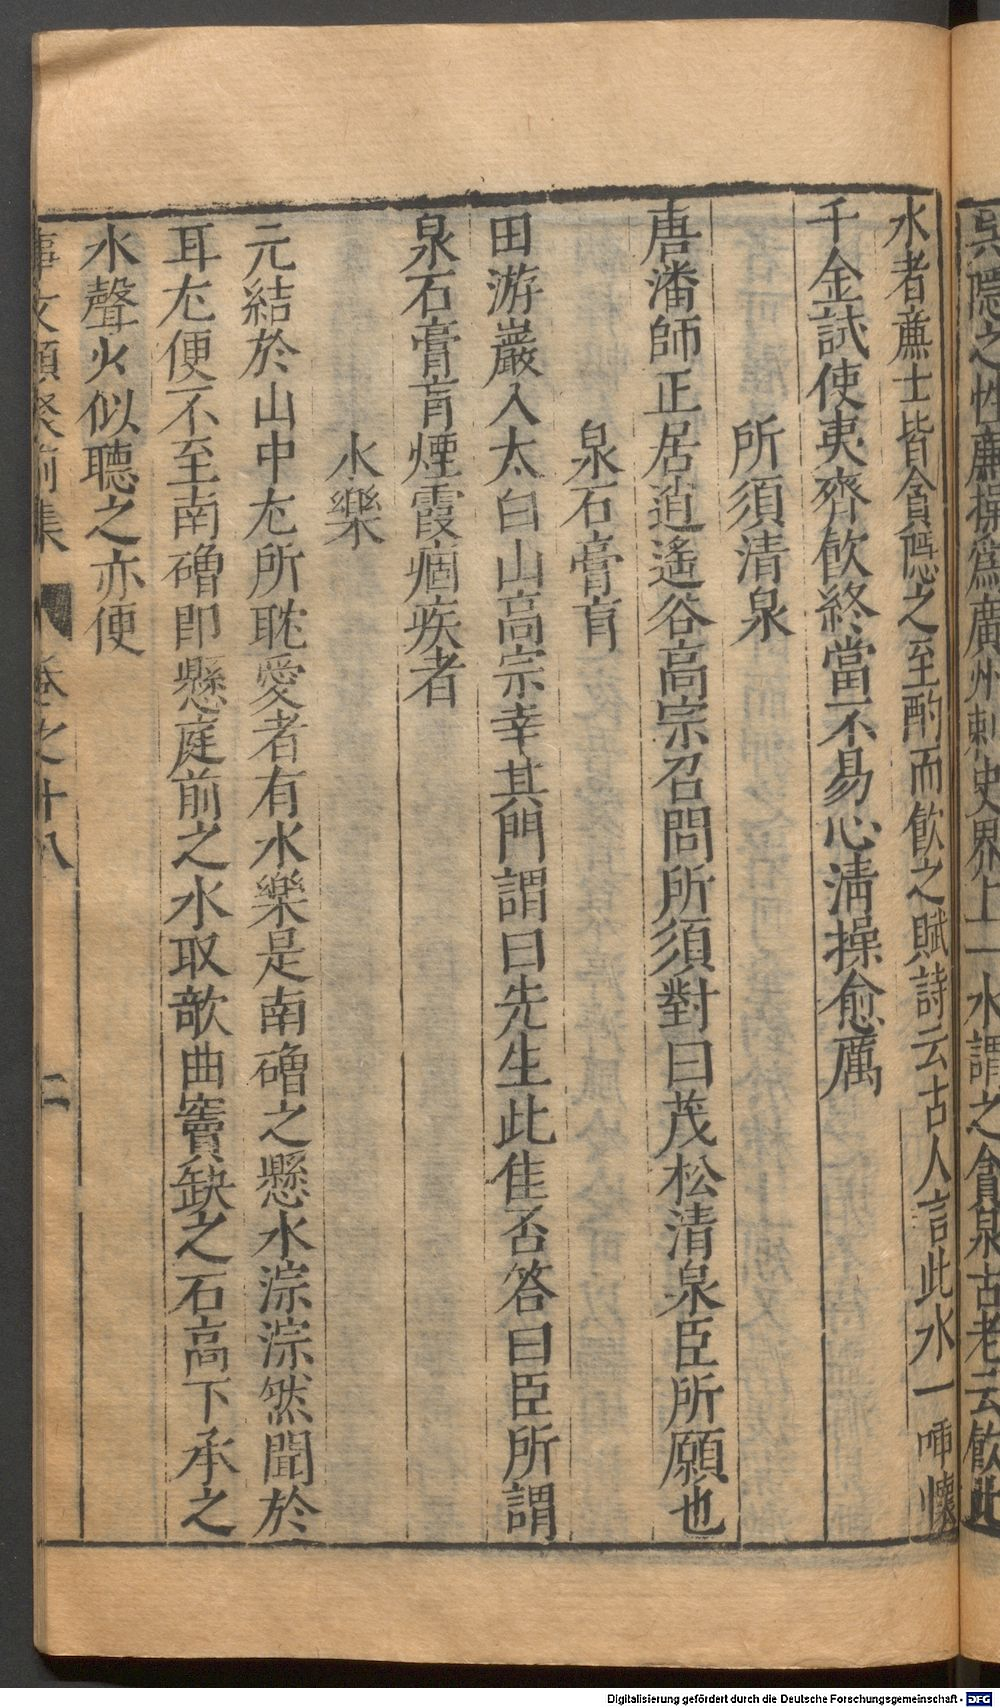 吳隱之性廉操爲廣州刺史界上一水謂之貪泉古老云飲此
水者廉士皆貪隱之至酌而飲之賦詩云古人言此水一唓懷
千金試使夷齊飲終當不易心淸操愈厲
所須清泉
唐潘師正居逍遙谷高宗召問所須對曰茂松清泉臣所願也
泉石膏肓
田游巖入太白山高宗幸其門謂曰先生此佳否答曰臣所謂
泉石膏肓煙霞痼疾者
水樂
元結於山中尤所耽愛者有水樂是南磳之懸水淙淙然聞於
耳尤便不至南磳即懸庭前之水取欹曲竇缺之石高下承之
水聲少似聽之亦便
事文類聚前集 卷之十八 二
Digitalisierung gefördert durch die Deutsche Forschungsgemeinschaft - DFG